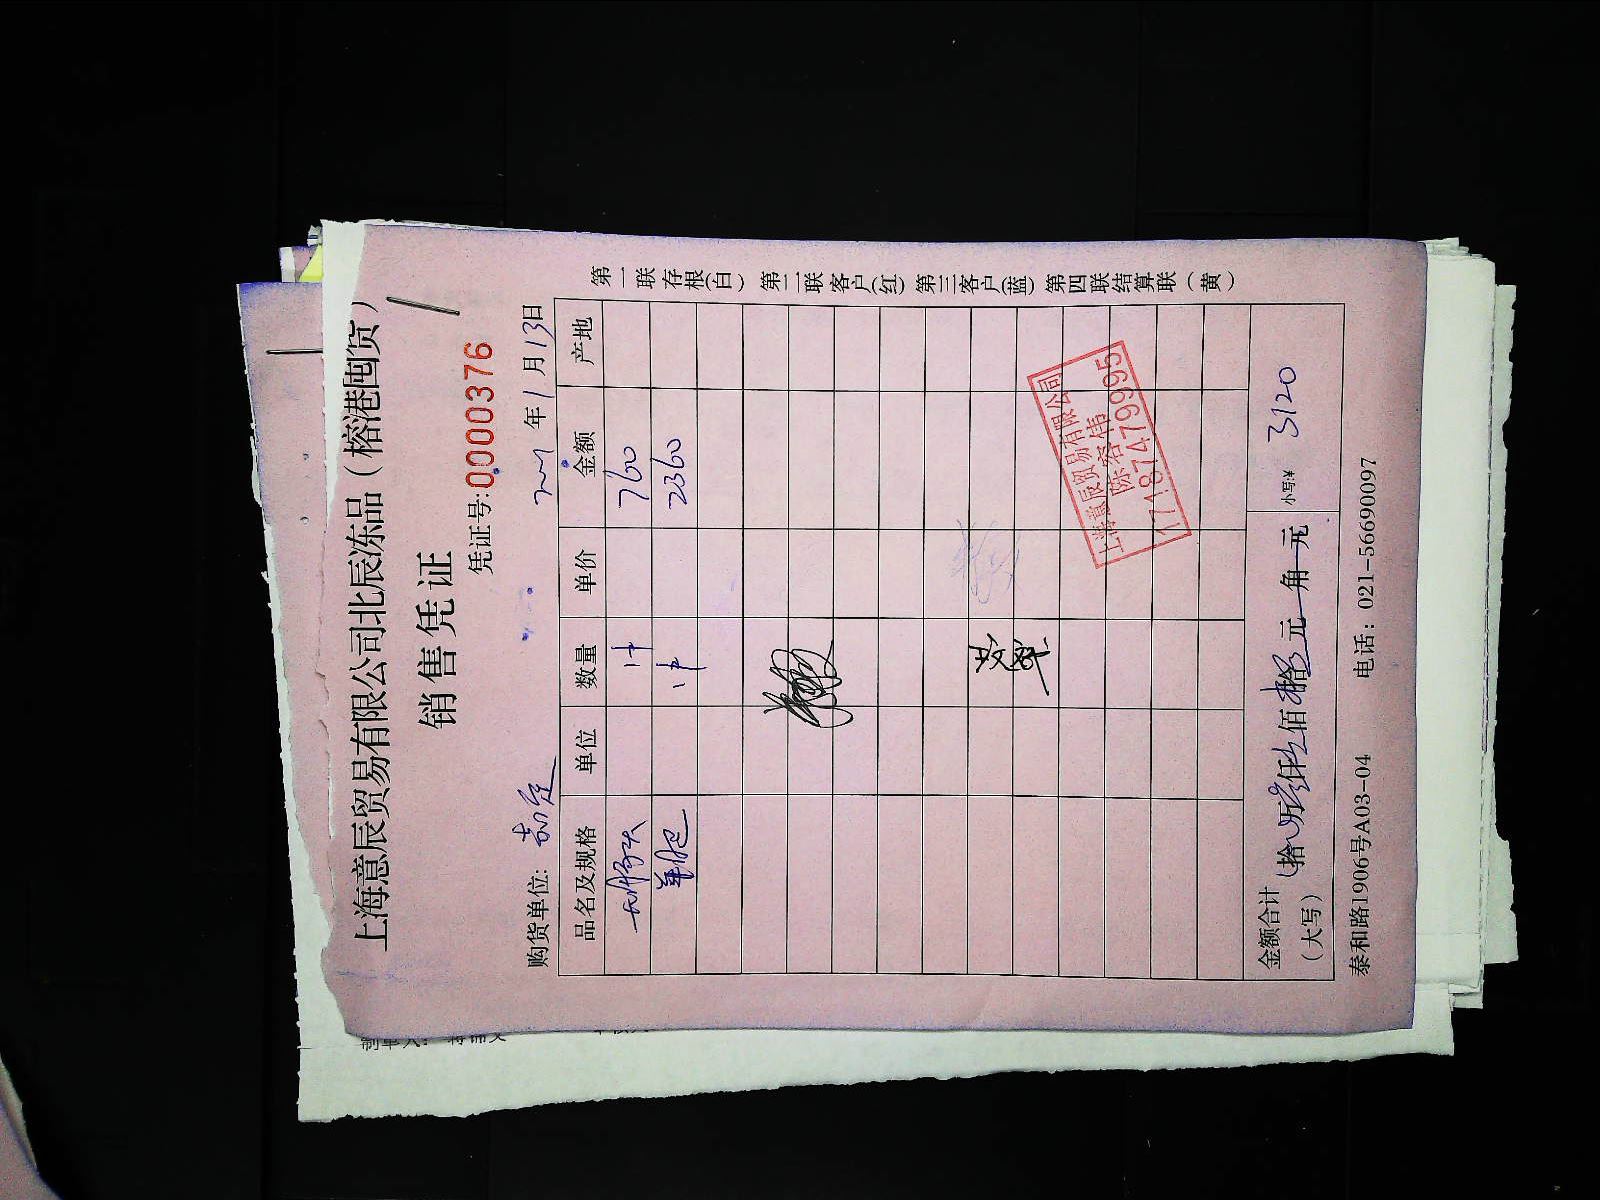 上海意辰贸易有限公司北辰冻品（榕港囤货）
销售凭证
凭证号:0000376
购货单位:
年1月13日
品名及规格 单位 数量 单价 金额 产地
1件 760
羊肥 1件 2360
上海意辰贸易有限公司
陈容伟
17187479995
金额合计（大写） 拾 万叁仟壹佰 拾 元 角 元 小写:¥ 3120
泰和路1906号A03-04 电话：021-56690097
第一联存根(白) 第二联客户(红) 第三客户(蓝) 第四联结算联（黄）